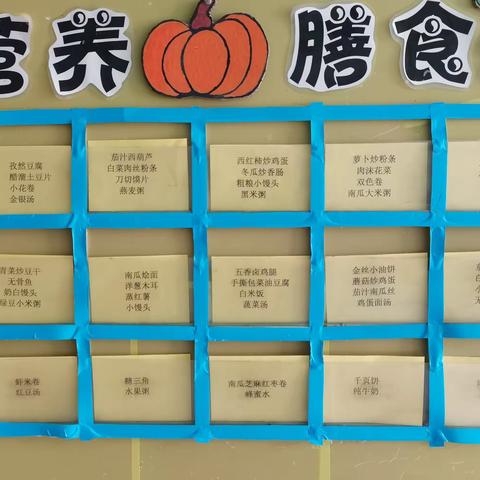 营养膳食
孜然豆腐
醋溜土豆片
小花卷
金银汤
茄汁西葫芦
白菜肉丝粉条
刀切馍片
燕麦粥
西红柿炒鸡蛋
冬瓜炒香肠
粗粮小馒头
黑米粥
萝卜炒粉条
肉沫花菜
双色卷
南瓜大米粥
青菜炒豆干
无骨鱼
奶白馒头
绿豆小米粥
南瓜烩面
洋葱木耳
蒸红薯
小馒头
五香卤鸡腿
手撕包菜油豆腐
白米饭
蔬菜汤
金丝小油饼
蘑菇炒鸡蛋
茄汁南瓜丝
鸡蛋面汤
虾米卷
红豆汤
糖三角
水果粥
南瓜芝麻红枣卷
蜂蜜水
千页饼
纯牛奶